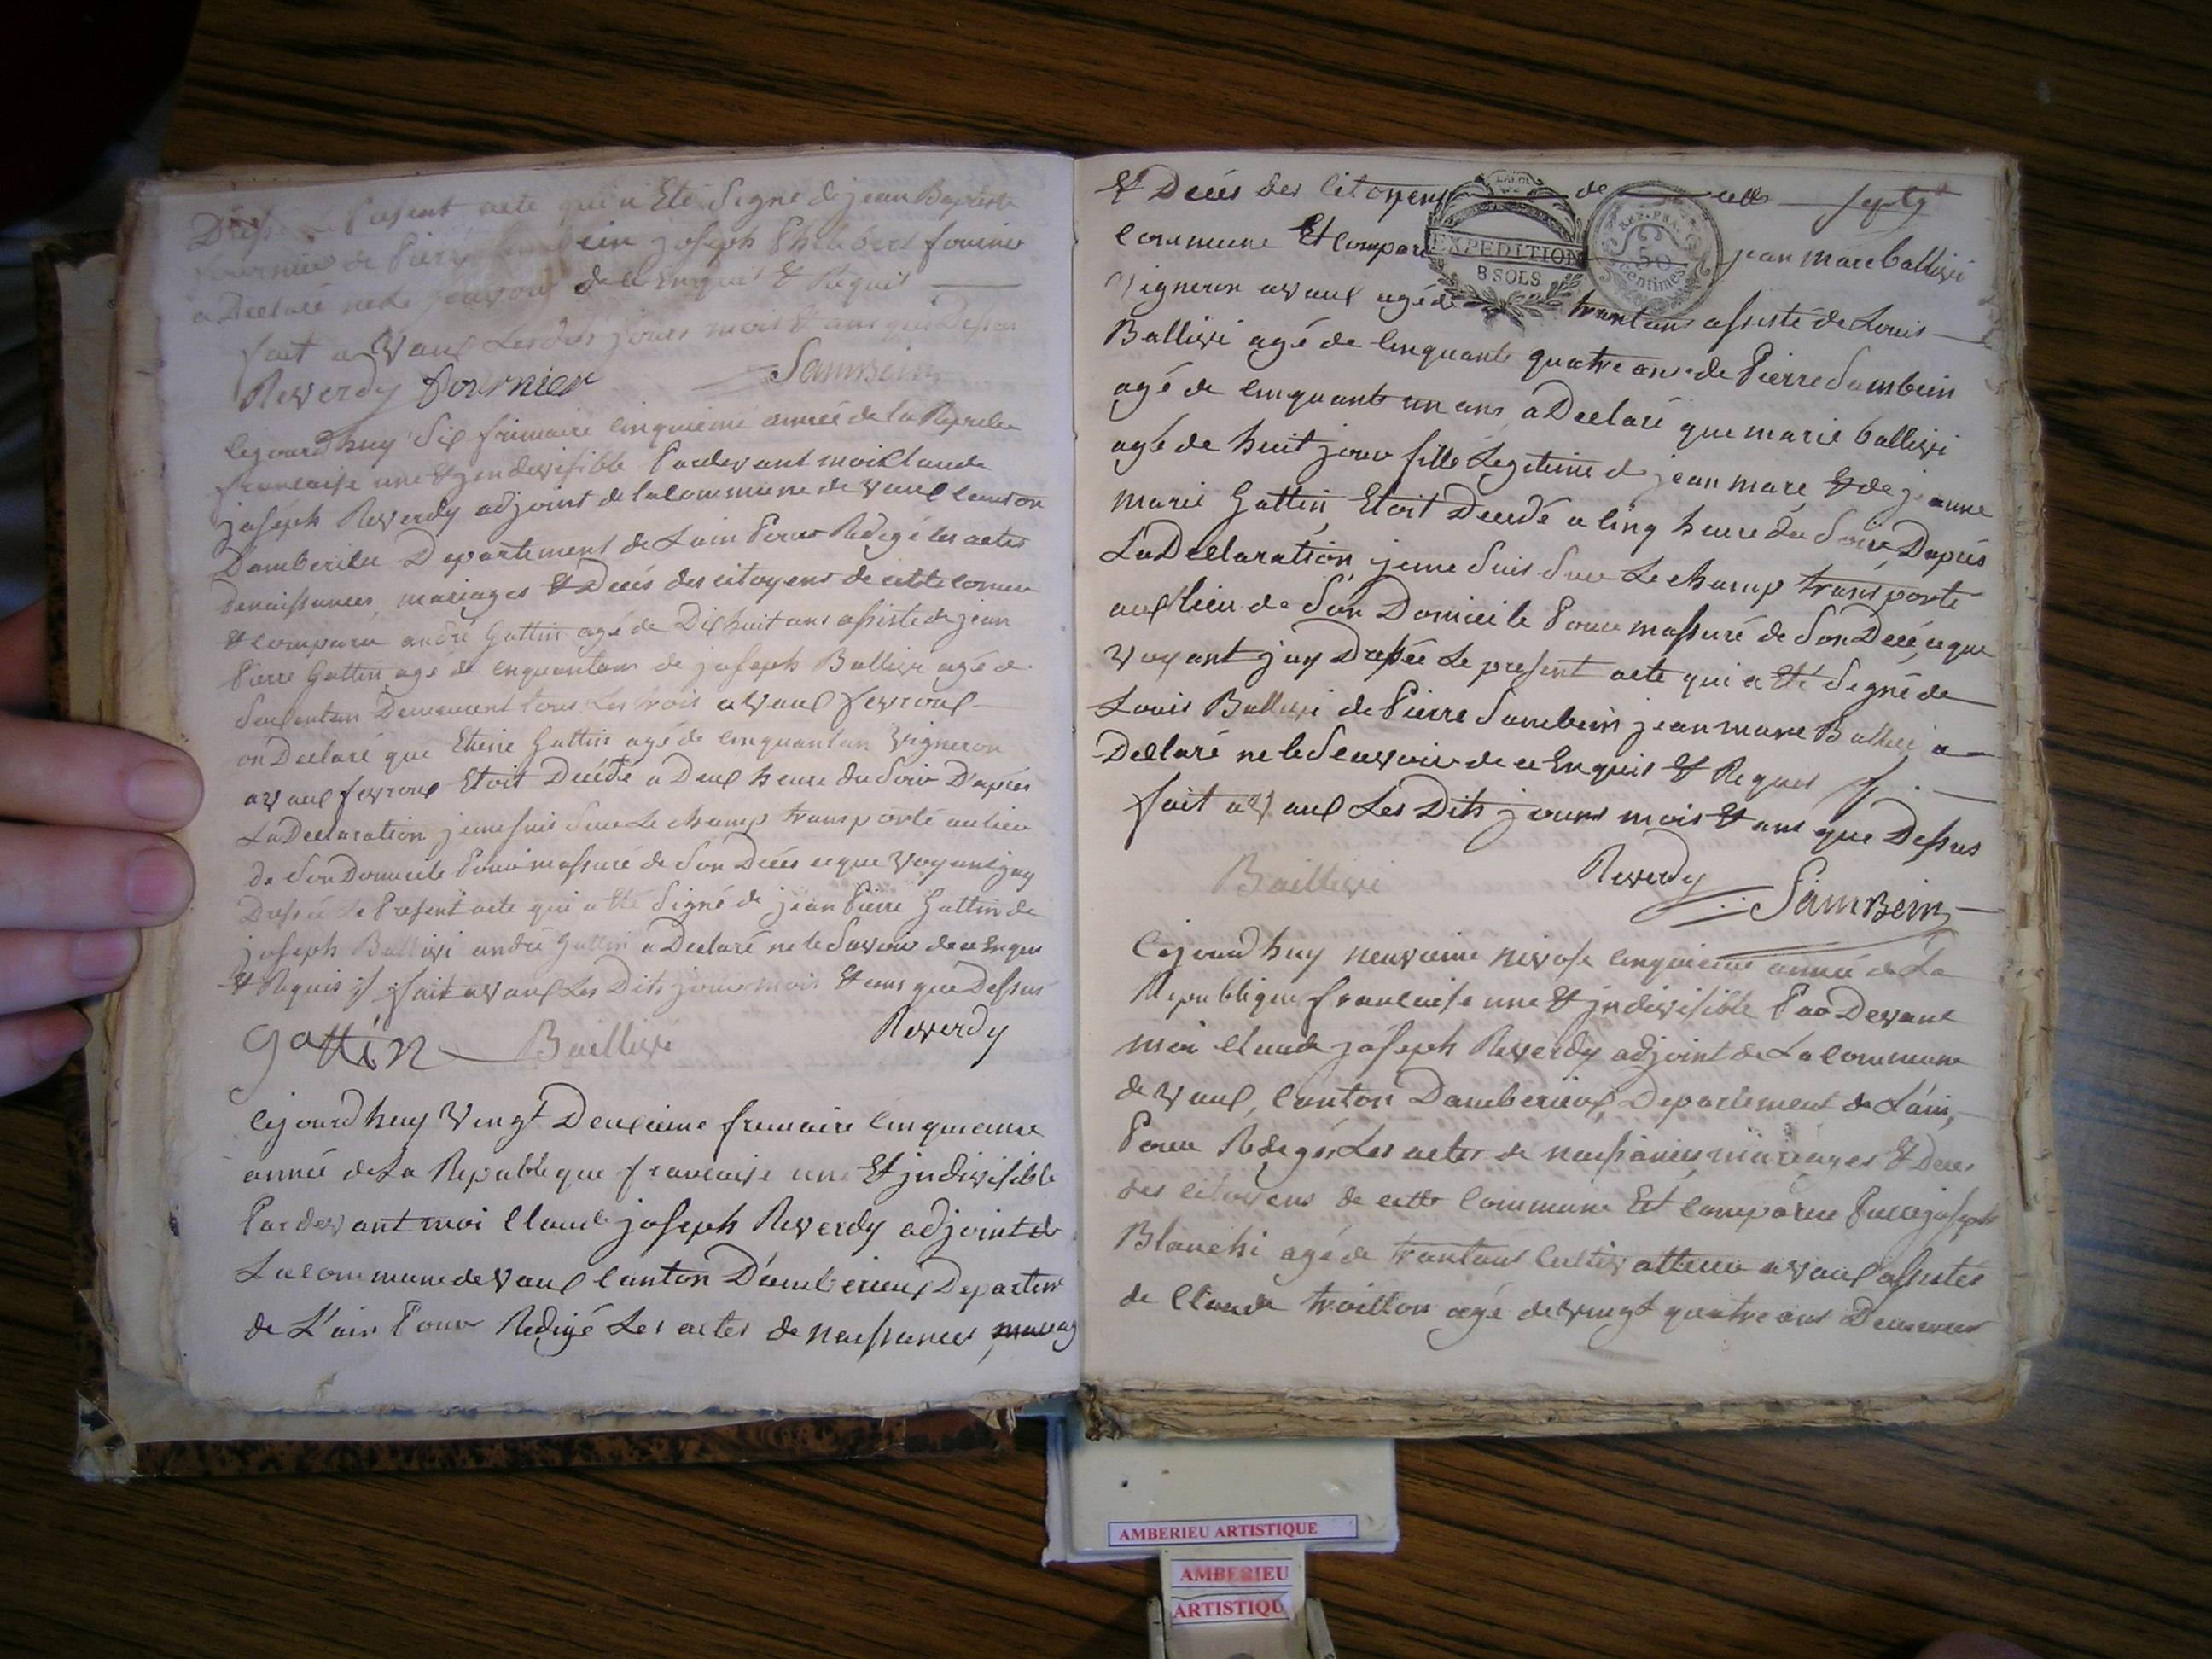 Present acte qui a Eté Signé de jean Baptiste
fournier de Pierre Sambein joseph Philibert fournier
a Declaré ne le sçavoir de ce Enquis & Requis
fait a Vaux Lesdits jours mois & ans que Dessus
Reverdy fournier Sambein
Cejourdhuy Six frimaire Cinquieme année de la Republi
francaise une & jndivisible Pardevant moi Claude
joseph Reverdy adjoint de la Commune de Vaux Canton
Damberieu Departement de Lain Pour Redigé les actes
Denaissances, mariages & Decés des citoyens de cette Comm
& Comparu andré Gattin agé de Dixhuit ans assisté de jean
Pierre Gattin agé de Cinquantans de joseph Ballivi agé de
Demeurent tous Les trois a Vaux fevroux
on Declaré que Etiene Gattin agé de Cinquantan Vigneron
a Vaux fevroux Etoit Decédé a Deux heure du Soir D'apres
La Declaration jemesuis Sur Le champ transporté au lieu
de Son Domicile Pour massuré de Son Decés ceque Voyant jay
Dressée Le Present acte qui a Eté Signé de jean Pierre Gattin de
joseph Ballivi andré Gattin a Declaré ne le Savoir de ce Enqui
& Requis fait a Vaux Les Dits jour mois & ans que Dessus
Gattin Baillivi Reverdy
Cejourdhuy Vingt Deuxieme frimaire Cinquieme
année de La Republique francaise une Et jndivisible
Pardevant moi Claude joseph Reverdy adjoint de
La Commune de Vaux Canton D'amberieux Departem
de L'ain Pour Redigé Les actes de naissances, mariag
& Decés des Citoyens de cette
Commune Et Compar jean marc ballivi
Vigneron a Vaux agé de trantans assisté de Louis
Ballivi agé de Cinquante quatre ans de Pierre Sambein
agé de Cinquante un ans a Declaré que marie ballivi
agé de huit jour fille Legitime de jean marc & de jeanne
marie Gattin Etoit Decedé a Cinq heure du Soir Dapres
La Declaration jeme Suis Sur Le champ transporté
aux lieu de Son Domicile Pour massuré de Son Decé ceque
Voyant jay Dressée Le present acte qui a Eté Signé de
Louis Ballivi de Pierre Sambein jean marc Ballivi a
Declaré ne le Scavoir de ce Enquis & Requis
fait a Vaux Les Dits jours mois & ans que Dessus
Baillivi Reverdy Sambein
Cejourdhuy neuvieme nivose Cinquieme année de La
Republique francaise une & jndivisible Par Devant
moi Claude joseph Reverdy adjoint de La Commune
de Vaux, Canton Damberieux, Departement de L'ain,
Pour Redigér Les actes de naissances, mariages & Deces
des Citoyens de cette Commune Et Comparu joseph
Blanchi agé de trantans Cultivatteur a Vaux assistés
de Claude troillon agé de Vingt quatre ans Demeurent
EXPEDITION
8 SOLS
REP. FRA.
50
Centimes
AMBERIEU ARTISTIQUE
AMBERIEU
ARTISTIQU